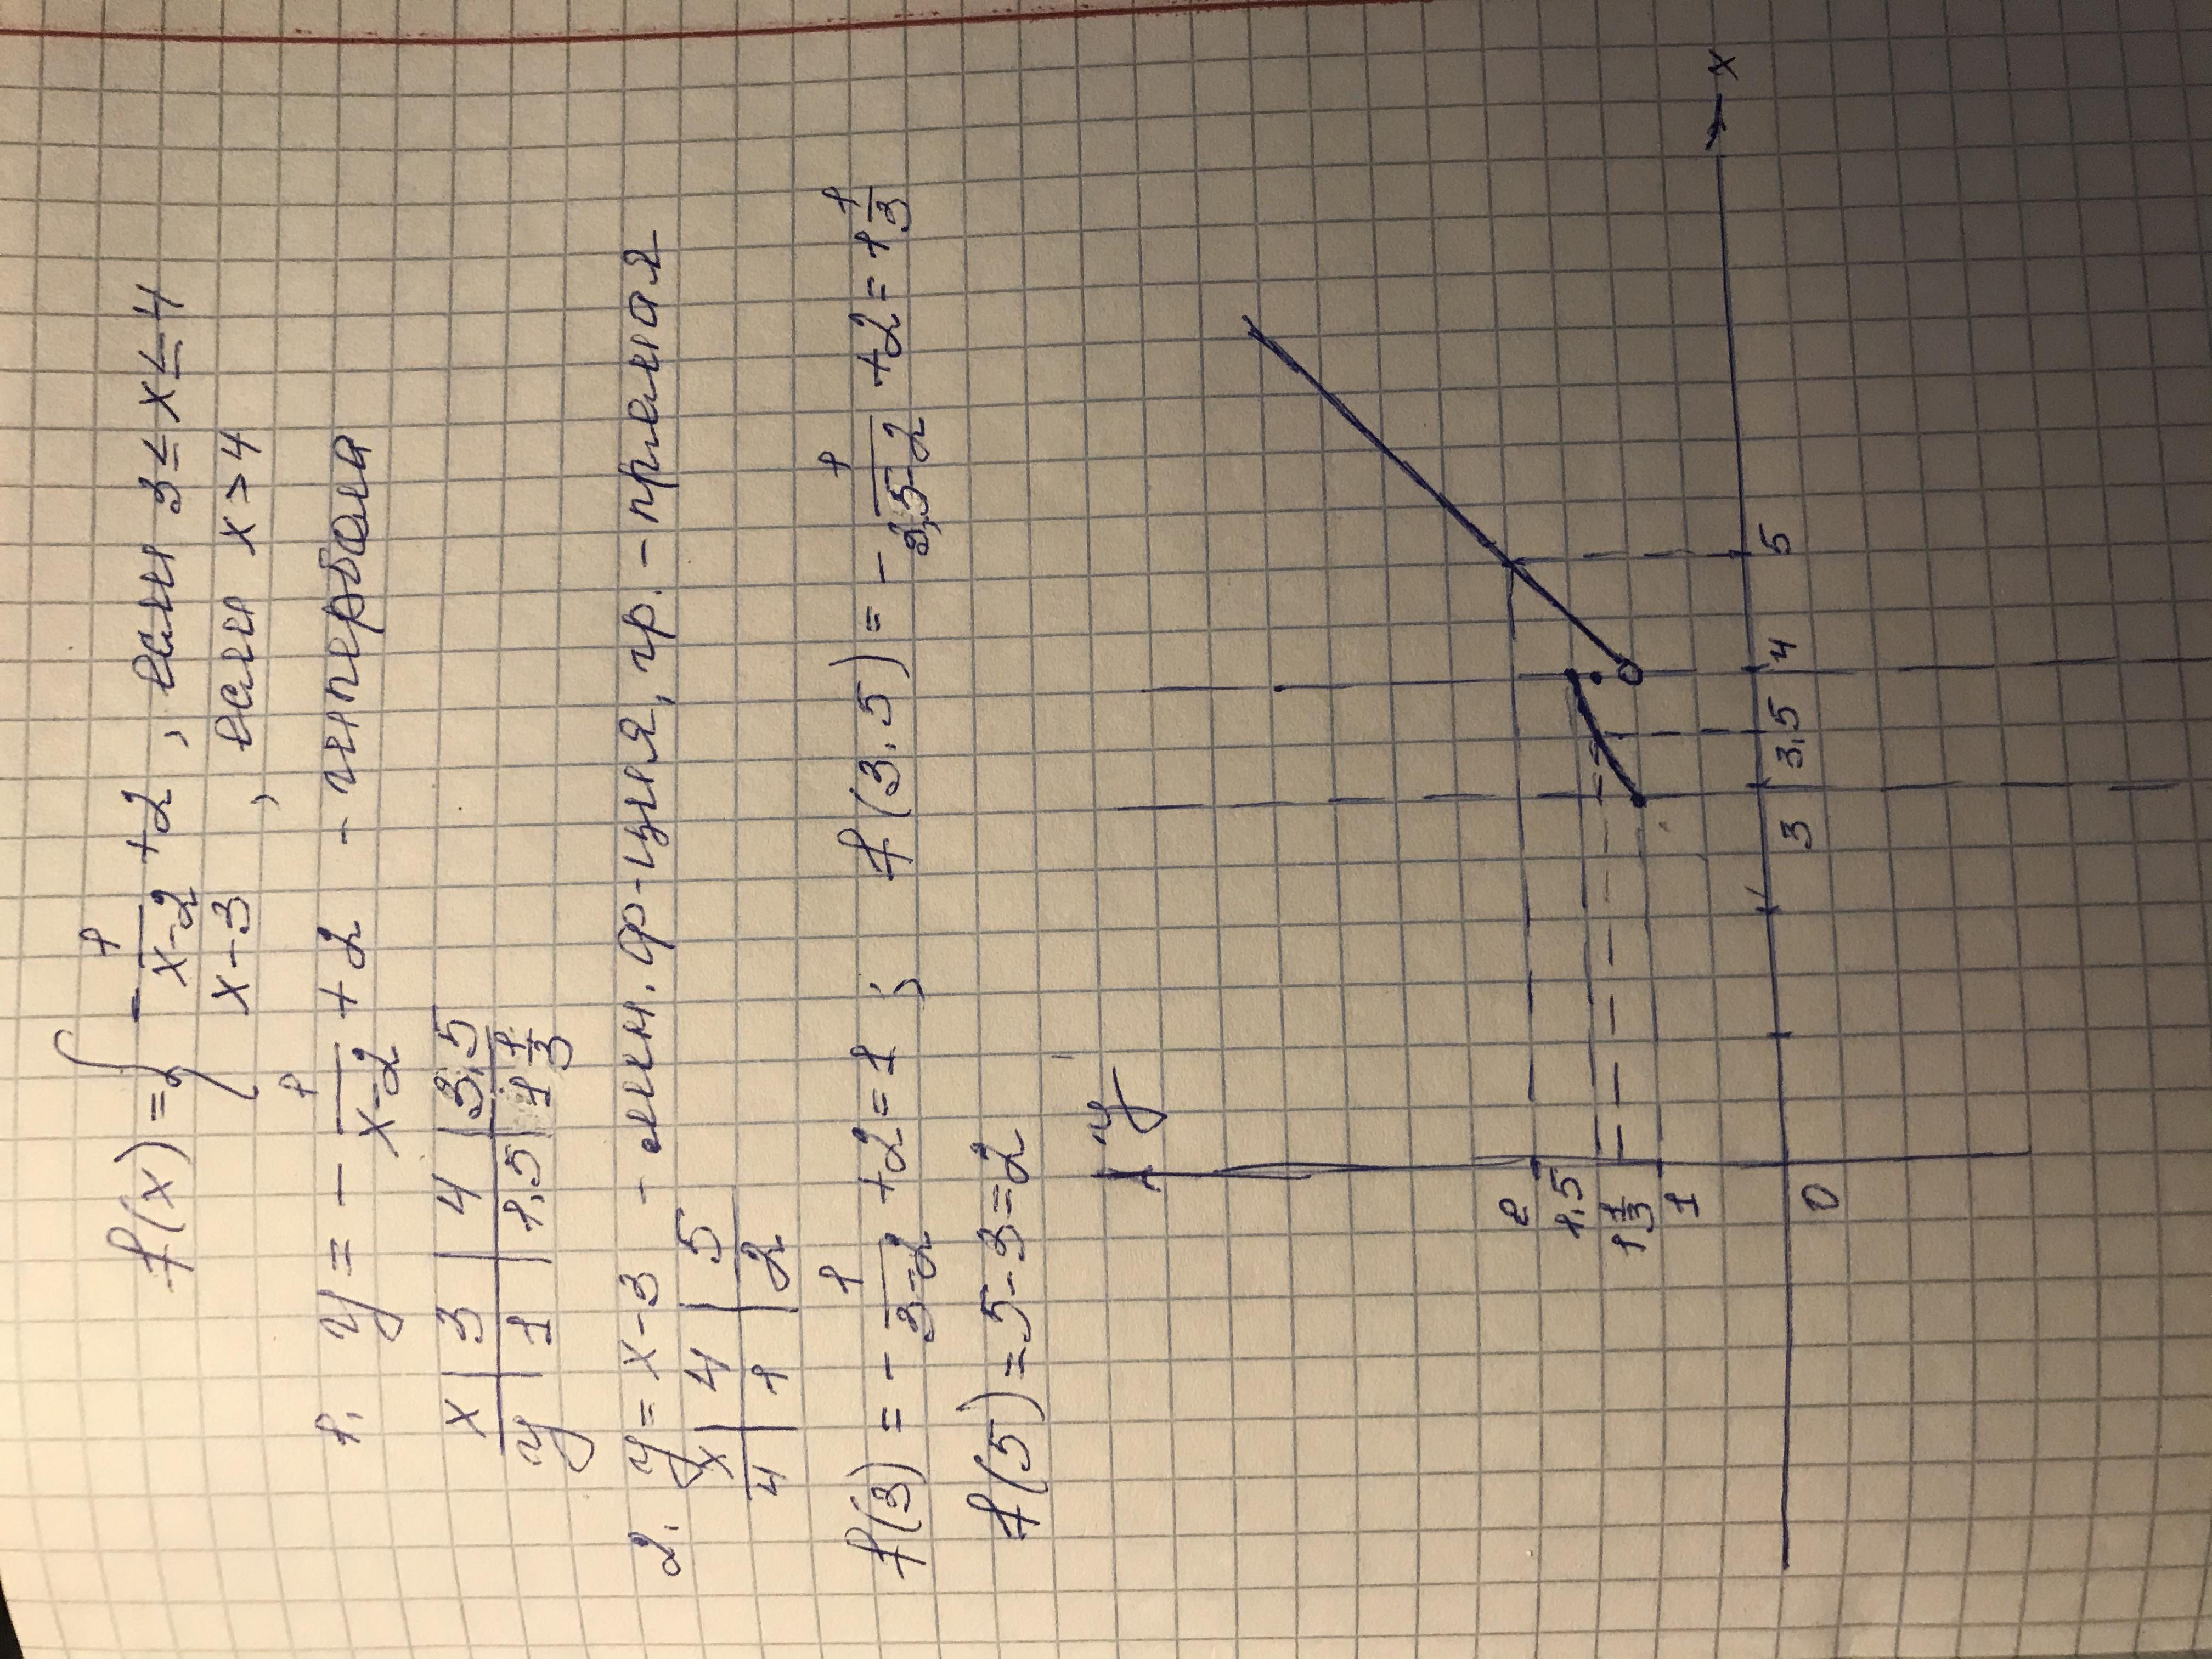 f(x) = { - 1/(x-2) + 2 , если 3 ≤ x ≤ 4
x - 3 , если x > 4
1. y = - 1/(x-2) + 2 - гипербола
x | 3 | 4 | 3,5
y | 1 | 1,5 | 1 1/3
2. y = x - 3 - лин. ф-ция, гр. - прямая
x | 4 | 5
y | 1 | 2
f(3) = - 1/(3-2) + 2 = 1 ; f(3,5) = - 1/(3,5-2) + 2 = 1 1/3
f(5) = 5 - 3 = 2
y
2
1,5
1 1/3
1
0 3 3,5 4 5
x